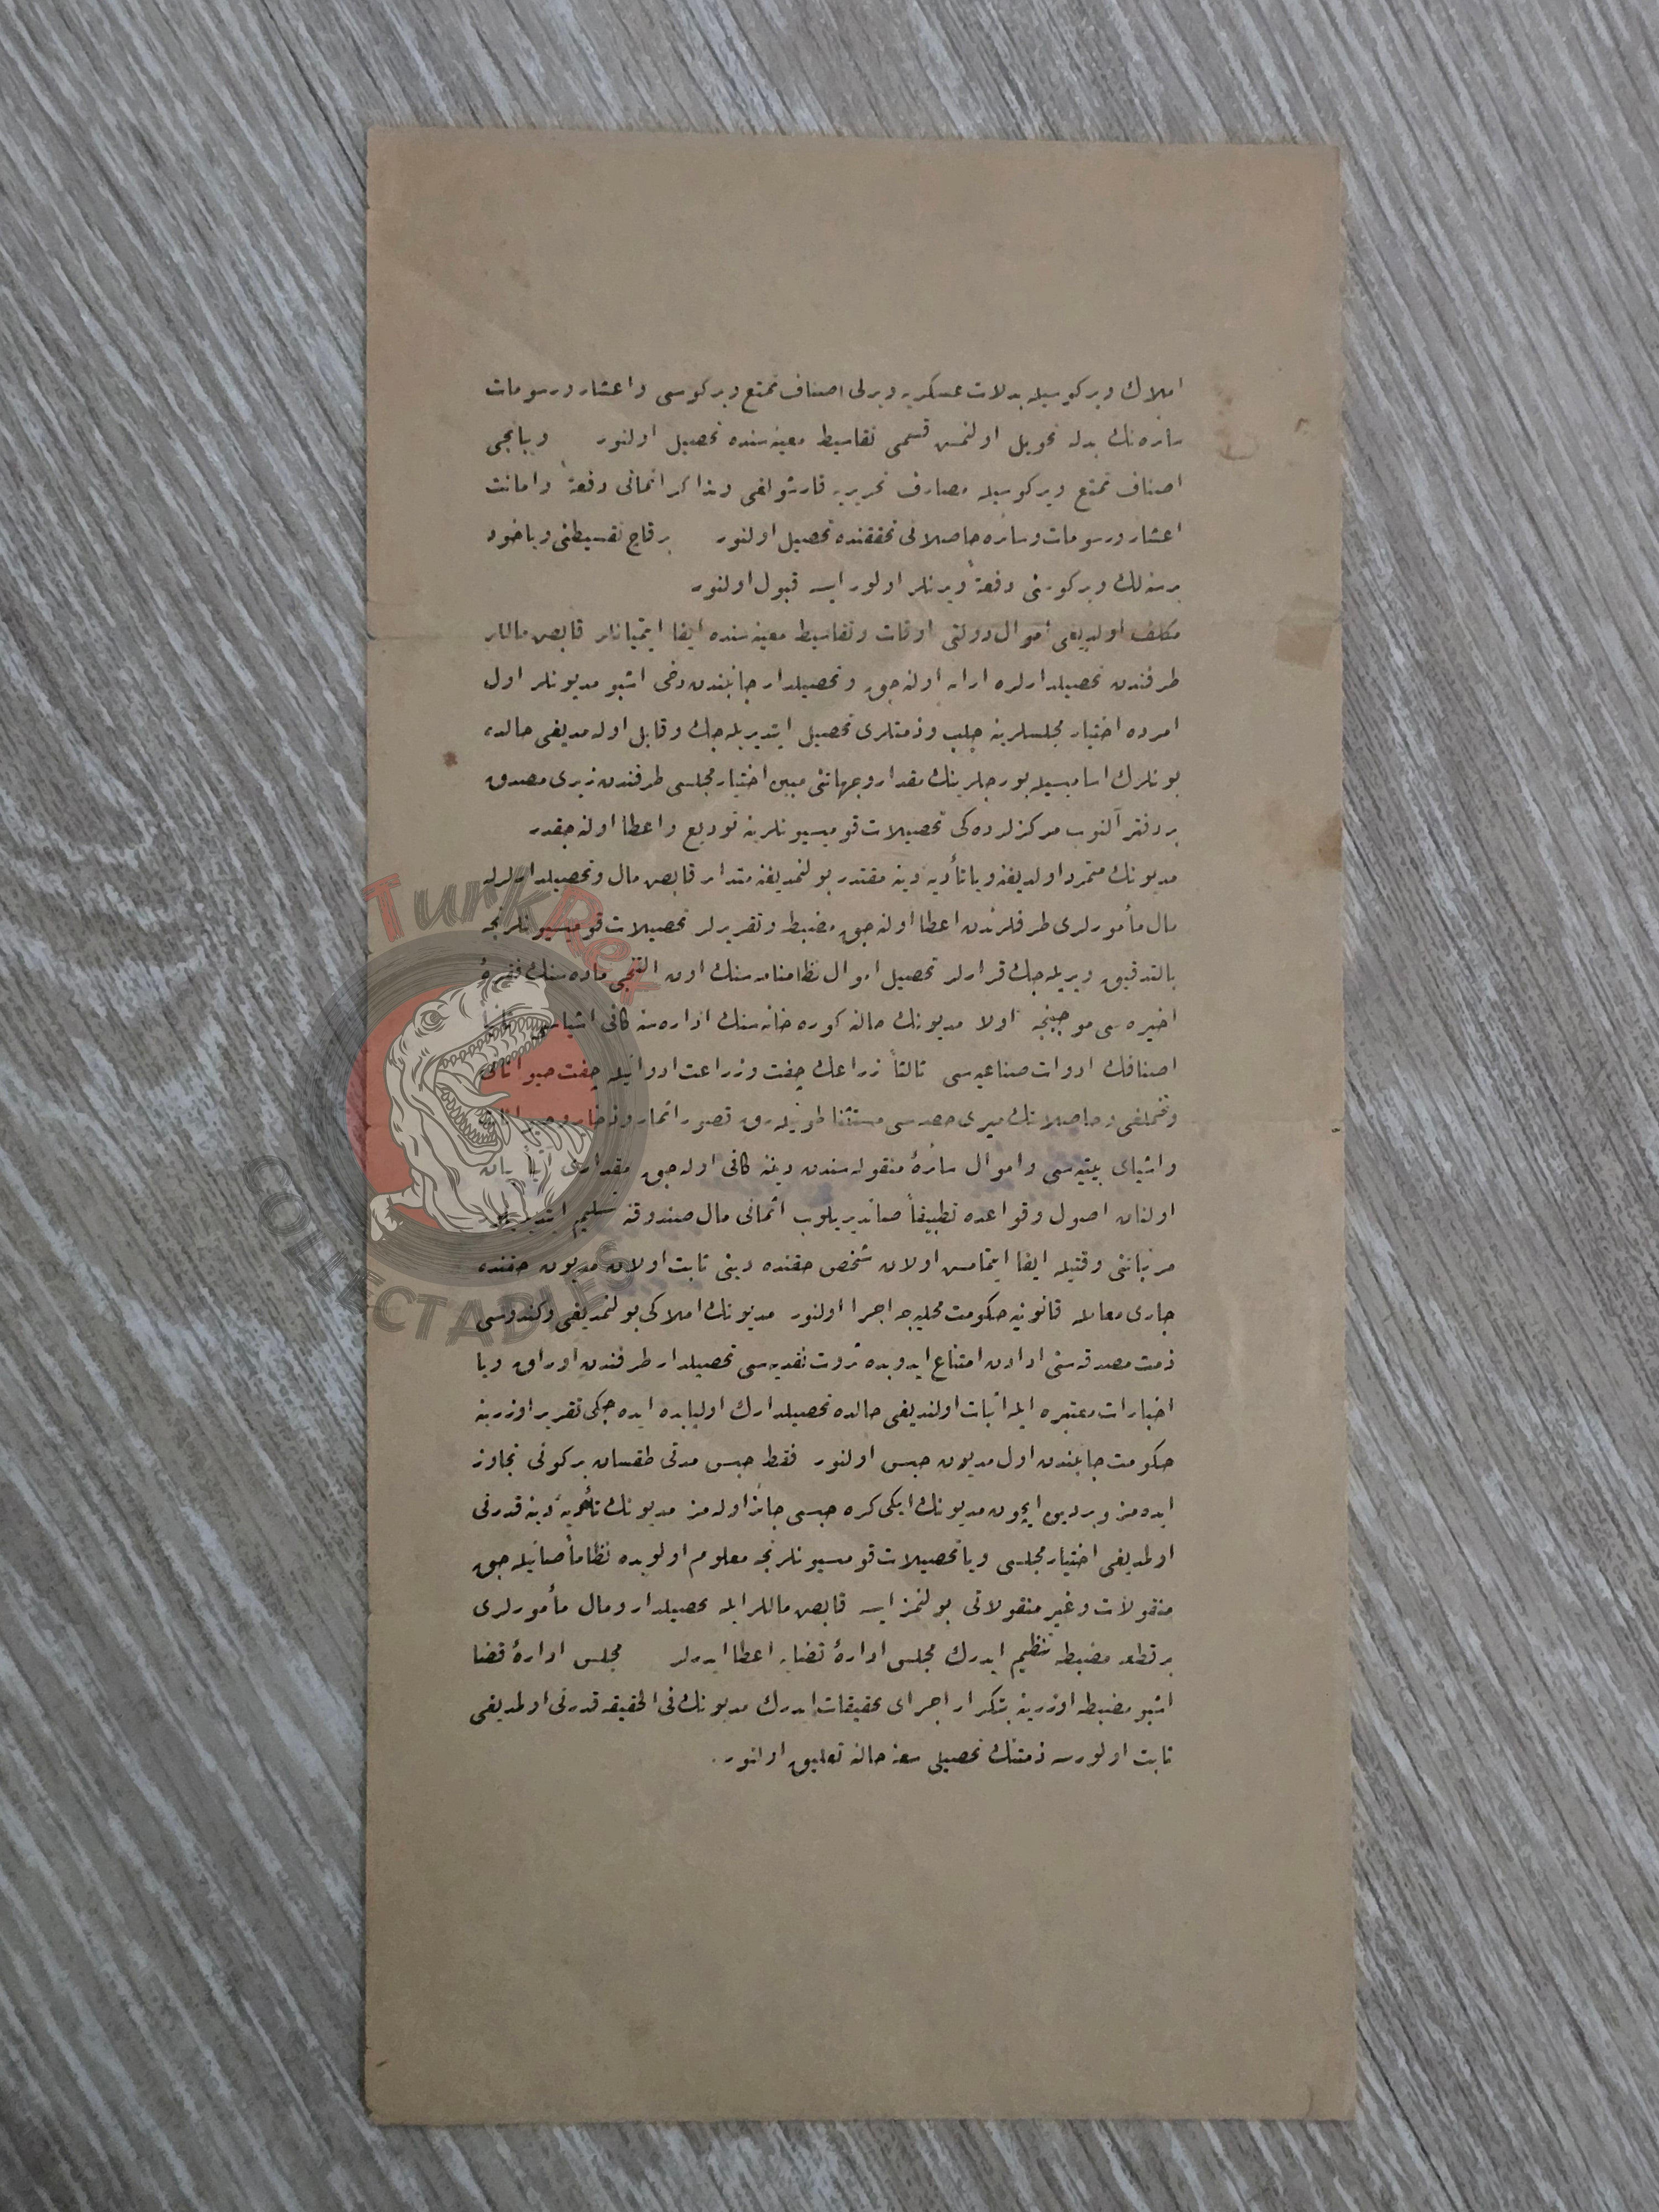 املاك ويركوسيله بدلات عسكريه ويرلى اصناف تمتع ويركوسى واعشار ورسومات
سائره نك بدله تحويل اولنمش قسمى تقاسيط معينه سنده تحصيل اولنور وبابجى
اصناف تمتع ويركوسيله مصارف تحريريه قارشولغى وتذاكر اثمانى دفعةً وامانت
اعشار ورسومات وسائره حاصلاتى تحققنده تحصيل اولنور برقاچ تقسيطنى وياخود
برسنه لك ويركوسنى دفعةً ويرنلر اولور ايسه قبول اولنور
مكلف اولديغى اموال دولتى اوقات وتقاسيط معينه سنده ايفا ايتميانلر قابض ماللر
طرفندن تحصيلدارلره ارائه اولنه جق وتحصيلدار جانبندن دخى اشبو مديونلر اول
امرده اختيار مجلسلرينه جلب وذمتلرى تحصيل ايتديريله جك وقابل اوله مديغى حالده
بونلرك اساميسيله بورجلرينك مقدار وجهاتنى مبين اختيار مجلسى طرفندن زيرى مصدق
بر دفتر آلنوب مركزلرده كى تحصيلات قوميسيونلرينه توديع واعطا اولنه جقدر
مديونك متمرد اولديغنه ويا تأديه دينه مقتدر بولنمديغنه متدائر قابض مال وتحصيلدارلرله
مال مأمورلرى طرفلرندن اعطا اولنه جق مضبطه وتقريرلر تحصيلات قوميسيونلرنجه
بالتدقيق ويريله جك قرارلر تحصيل اموال نظامنامه سنك اون التنجى ماده سنك فقرۀ
اخيره سى موجبنجه اولا مديونك حالنه كوره خانه سنك اداره سنه كافى اشياسى
اصنافك ادوات صناعيه سى ثالثاً زراعك چفت وزراعت ادواتيله چفت حيواناتى
وتخملغى وحاصلاتك ميرى حصه سى مستثنا طوتيله رق قصور اثمار وذخائر وحيواناتى
واشياى بيتيه سى واموال سائرۀ منقوله سندن دينه كافى اوله جق مقدارى
اولنان اصول وقواعده تطبيقاً صاتديريلوب اثمانى مال صندوقنه تسليم ايتديريلور
مرتباتنى وقتيله ايفا ايتمامش اولان شخص حقنده دينى ثابت اولان مديون حقنده
جارى معامله قانونيه حكومت محليه جه اجرا اولنور مديونك املاكى بولنمديغى وكندوسى
ذمت مصدقه سنى ادادن امتناع ايدوبده ثروت نقديه سى تحصيلدار طرفندن اوراق ويا
اخبارات معتبره ايله اثبات اولنديغى حالده تحصيلدارك اولبابده ايده جكى تقرير اوزرينه
حكومت جانبندن اول مديون حبس اولنور فقط حبس مدتى طقسان بر كونى تجاوز
ايده مز وبر ديون ايچون مديونك ايكى كره حبسى جائز اوله مز مديونك تأديۀ دينه قدرتى
اولمديغى اختيار مجلسى ويا تحصيلات قوميسيونلرنجه معلوم اولوبده نظاماً صاتيله جق
منقولات وغير منقولاتى بولنمز ايسه قابض ماللر ايله تحصيلدار ومال مأمورلرى
بر قطعه مضبطه تنظيم ايدرك مجلس ادارۀ قضايه اعطا ايدرلر مجلس ادارۀ قضا
اشبو مضبطه اوزرينه بتكرار اجراى تحقيقات ايدرك مديونك فى الحقيقه قدرتى اولمديغى
ثابت اولورسه ذمتنك تحصيلى سعه حالنه تعليق اولنور.
TurkRex
COLLECTABLES